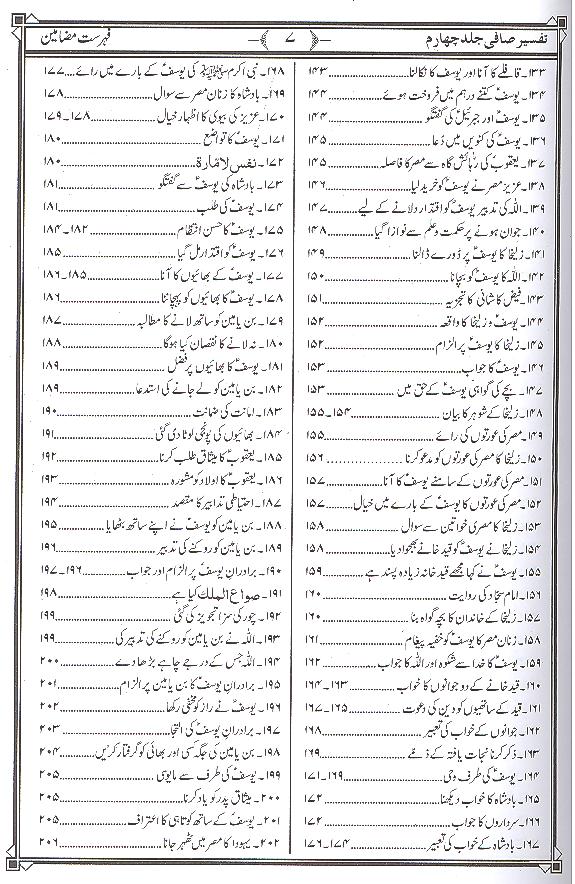 تفسیر صافی جلد چہارم
﴿ ۷ ﴾
فہرست مضامین
۱۳۳۔ قافلے کا آنا اور یوسفؑ کا نکالنا ۱۴۳
۱۳۴۔ یوسفؑ کتنے درہم میں فروخت ہوئے ۱۴۴
۱۳۵۔ یوسفؑ اور جبرئیلؑ کی گفتگو ۱۴۴
۱۳۶۔ یوسفؑ کی کنویں میں دُعا ۱۴۵
۱۳۷۔ یعقوبؑ کی رہائش گاہ سے مصر کا فاصلہ ۱۴۵
۱۳۸۔ عزیز مصر نے یوسفؑ کو خرید لیا ۱۴۶
۱۳۹۔ اللہ کی تدبیر یوسفؑ کو اقتدار دلانے کے لیے ۱۴۷
۱۴۰۔ جوان ہونے پر حکمت و علم سے نوازا گیا ۱۴۸
۱۴۱۔ زلیخا کا یوسفؑ پر ڈورے ڈالنا ۱۴۹
۱۴۲۔ اللہ کا یوسفؑ کو بچانا ۱۵۰
۱۴۳۔ فیض کاشانی کا تجزیہ ۱۵۱
۱۴۴۔ یوسفؑ و زلیخا کا واقعہ ۱۵۲
۱۴۵۔ زلیخا کا یوسفؑ پر الزام ۱۵۲
۱۴۶۔ یوسفؑ کا جواب ۱۵۳
۱۴۷۔ بچے کی گواہی یوسفؑ کے حق میں ۱۵۳
۱۴۸۔ زلیخا کے شوہر کا بیان ۱۵۴۔۱۵۵
۱۴۹۔ مصر کی عورتوں کی رائے ۱۵۵
۱۵۰۔ زلیخا کا مصر کی عورتوں کو مدعو کرنا ۱۵۶
۱۵۱۔ مصر کی عورتوں کے سامنے یوسفؑ کا آنا ۱۵۷
۱۵۲۔ مصر کی عورتوں کا یوسفؑ کے بارے میں خیال ۱۵۷
۱۵۳۔ زلیخا کا مصری خواتین سے سوال ۱۵۸
۱۵۴۔ زلیخا نے یوسفؑ کو قید خانے بھجوا دیا ۱۵۸
۱۵۵۔ یوسفؑ نے کہا مجھے قید خانہ زیادہ پسند ہے ۱۵۹
۱۵۶۔ امام سجادؑ کی روایت ۱۶۰
۱۵۷۔ زلیخا کے خاندان کا بچہ گواہ بنا ۱۶۰
۱۵۸۔ زنان مصر کا یوسفؑ کو خفیہ پیغام ۱۶۱
۱۵۹۔ یوسفؑ کا خدا سے شکوہ اور اللہ کا جواب ۱۶۲
۱۶۰۔ قید خانے کے دو جوانوں کا خواب ۱۶۳۔۱۶۴
۱۶۱۔ قید کے ساتھیوں کو دین کی دعوت ۱۶۵۔۱۶۷
۱۶۲۔ جوانوں کے خواب کی تعبیر ۱۶۸
۱۶۳۔ ذکر کرنا نجات یافتہ کے ذمے ۱۶۹
۱۶۴۔ یوسفؑ کی طرف وحی ۱۶۹۔۱۷۱
۱۶۵۔ بادشاہ کا خواب دیکھنا ۱۷۲
۱۶۶۔ سرداروں کا جواب ۱۷۲
۱۶۷۔ بادشاہ کے خواب کی تعبیر ۱۷۴۔۱۷۶
۱۶۸۔ نبی اکرم ﷺ کی یوسفؑ کے بارے میں رائے ۱۷۷
۱۶۹۔ بادشاہ کا زنان مصر سے سوال ۱۷۸
۱۷۰۔ عزیز کی بیوی کا اظہار خیال ۱۷۸۔۱۷۹
۱۷۱۔ یوسفؑ کا تواضع ۱۸۰
۱۷۲۔ نفس لامّارة ۱۸۰
۱۷۳۔ بادشاہ کی یوسفؑ سے گفتگو ۱۸۱
۱۷۴۔ یوسفؑ کی طلب ۱۸۱
۱۷۵۔ یوسفؑ کا حسن انتظام ۱۸۲۔۱۸۴
۱۷۶۔ یوسفؑ کو اقتدار مل گیا ۱۸۵
۱۷۷۔ یوسفؑ کے بھائیوں کا آنا ۱۸۵۔۱۸۶
۱۷۸۔ یوسفؑ کا بھائیوں کو پہچاننا ۱۸۶
۱۷۹۔ بن یامین کو ساتھ لانے کا مطالبہ ۱۸۷
۱۸۰۔ نہ لانے کا نقصان کیا ہوگا ۱۸۸
۱۸۱۔ یوسفؑ کا بھائیوں پر فضل ۱۸۹
۱۸۲۔ بن یامین کو لے جانے کی استدعا ۱۸۹
۱۸۳۔ امانت کی ضمانت ۱۹۰
۱۸۴۔ بھائیوں کی پونجی لوٹا دی گئی ۱۹۱
۱۸۵۔ یعقوبؑ کا میثاق طلب کرنا ۱۹۲
۱۸۶۔ یعقوبؑ کا اولاد کو مشورہ ۱۹۳
۱۸۷۔ احتیاطی تدابیر کا مقصد ۱۹۴
۱۸۸۔ بن یامین کو یوسفؑ نے اپنے ساتھ بٹھایا ۱۹۵
۱۸۹۔ بن یامین کو روکنے کی تدبیر ۱۹۶
۱۹۰۔ برادران یوسفؑ پر الزام اور جواب ۱۹۶۔۱۹۷
۱۹۱۔ صواع الملك کیا ہے ۱۹۸
۱۹۲۔ چور کی سزا تجویز کی گئی ۱۹۹
۱۹۳۔ اللہ نے بن یامین کو روکنے کی تدبیر کی ۱۹۹
۱۹۴۔ اللہ جس کے درجے چاہے بڑھا دے ۲۰۰
۱۹۵۔ برادران یوسفؑ کا بن یامین پر الزام ۲۰۱
۱۹۶۔ یوسفؑ نے راز کو مخفی رکھا ۲۰۲
۱۹۷۔ برادران یوسفؑ کی التجا ۲۰۳
۱۹۸۔ بن یامین کی جگہ کسی اور بھائی کو گرفتار کریں ۲۰۴
۱۹۹۔ یوسفؑ کی طرف سے مایوسی ۲۰۵
۲۰۰۔ میثاق پدر کو یاد کرنا ۲۰۵
۲۰۱۔ یوسفؑ کے ساتھ کوتاہی کا اعتراف ۲۰۵
۲۰۲۔ یہودا کا مصر میں ٹھہر جانا ۲۰۶